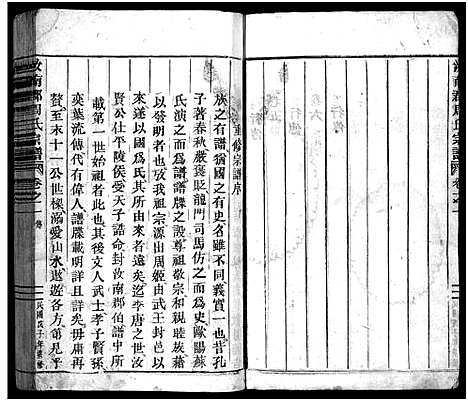 汝南郡周氏宗譜
卷之一
六
行
重修宗譜序
族之有譜猶國之有史名雖不同義實一也昔孔
子著春秋嚴褒貶龍門司馬仿之而爲史歐陽蘇
氏演之而爲譜譜牒之設尊祖敬宗和親睦族藉
以發明者也攷我祖宗源出周姬由武王封邑以
來遂以國爲氏其所由來者遠矣迄李唐之世汝
賢公仕平陵侯受天子誥命封汝南郡伯譜中所
載第一世始祖者此也其後文人武士孝子賢孫
奕葉流傳代有偉人譜牒載明詳且詳矣毋庸再
贅至末十一公世樑溺愛山水遨遊各方第見平
汝南郡周氏宗譜
卷之一
民國戊子年重修